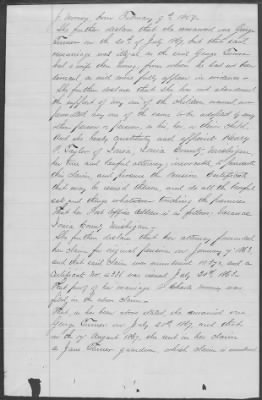 J. Money born February 9th 1857.
She further declares that she married one George
Turner on the 20th of July 1867 but that said
marriage was illegal as the said George Turner
had a wife then living, from whom he had not been
divorced, as will more fully appear in evidence.
She further declares that she has not abandoned
the support of any one of the children named nor
permitted any one of the same to be adopted by any
other person or persons, as his, her or their child.
And she hereby constitutes and appoints
of Ionia, Ionia County Michigan,
her true and lawful attorney, irrevocable to prosecute
this claim, and procure the pension certificate
that may be issued thereon, and do all the lawful
acts and things whatsoever touching the premises.
That her Post Office Address is as follows: Saranac
Ionia County Michigan.
She further declares that her attorney presented
her claim for original pension on January 1863
and that said claim was numbered and a
Certificate No was issued July 30th 1863.
That proof of her marriage to Charles Money was
filed in the above claim.
That, as has been above stated, she married one
George Turner on July 20th 1867, and that
on the 17th August 1869, she sent in her claim
as Jane Turner guardian which claim is numbered